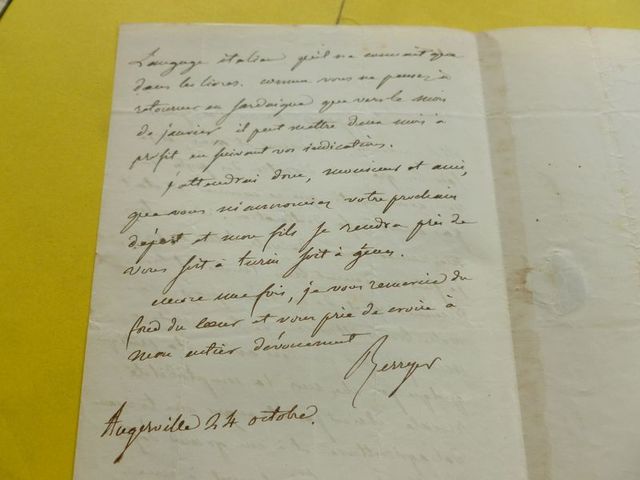 Langage italien qu'il ne connait que
dans les livres. comme vous ne pensez à
retourner en Sardaigne que vers le mois
de janvier il peut mettre deux mois à
profit en suivant vos indications.
j'attendrai donc, monsieur et ami,
que vous m'annonciez votre prochain
départ et mon fils se rendra près de
vous soit à turin soit à gênes.
encore une fois, je vous remercie du
fond du cœur et vous prie de croire à
mon entier dévouement
Berryer
Augerville 24 octobre.